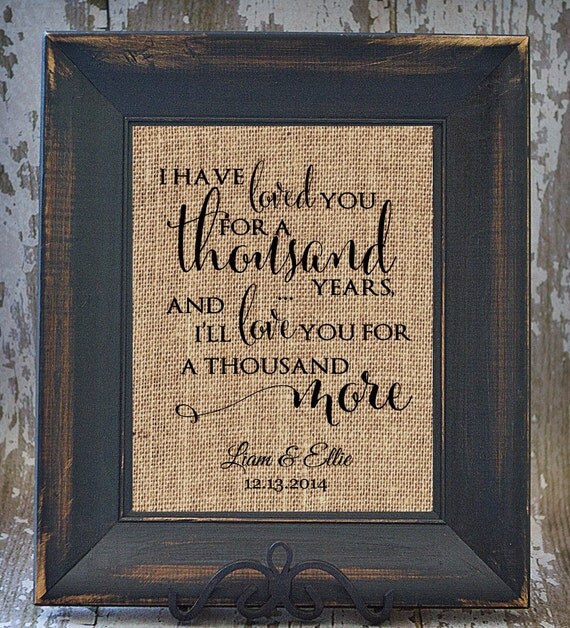 I HAVE loved YOU
FOR A
thousand
YEARS,
...
AND
I'LL love YOU FOR
A THOUSAND
more
Liam & Ellie
12.13.2014